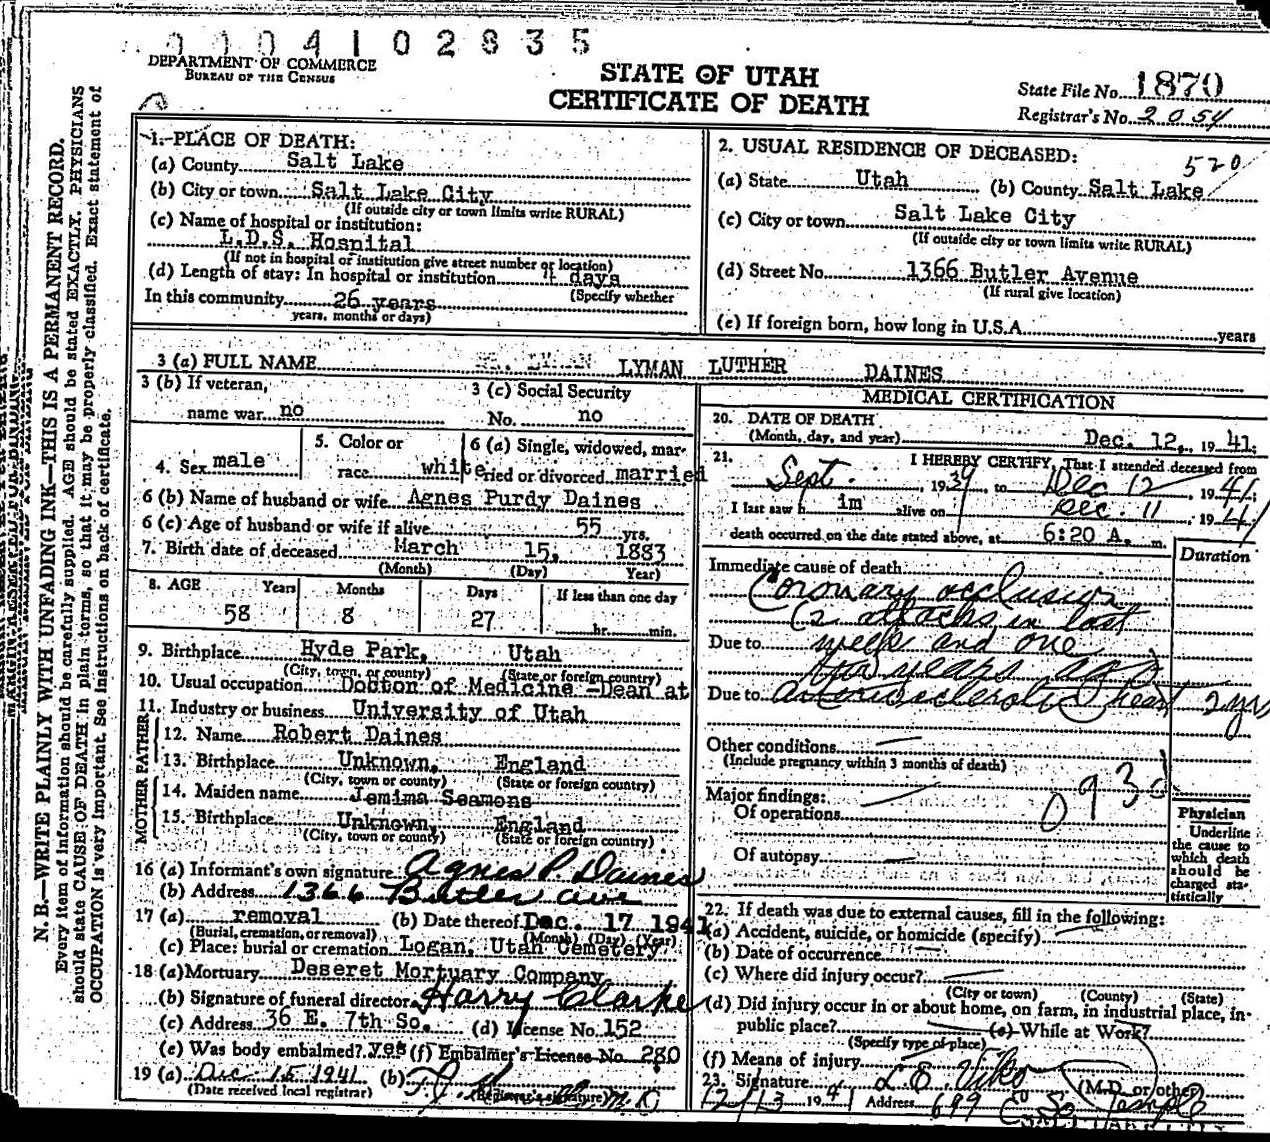 0004102835
DEPARTMENT OF COMMERCE
BUREAU OF THE CENSUS
STATE OF UTAH
CERTIFICATE OF DEATH
State File No. 1870
Registrar's No. 2054
N. B.—WRITE PLAINLY WITH UNFADING INK—THIS IS A PERMANENT RECORD.
Every item of information should be carefully supplied. AGE should be stated EXACTLY. PHYSICIANS
should state CAUSE OF DEATH in plain terms, so that it may be properly classified. Exact statement of
OCCUPATION is very important. See instructions on back of certificate.
1. PLACE OF DEATH:
(a) County Salt Lake
(b) City or town Salt Lake City
(If outside city or town limits write RURAL)
(c) Name of hospital or institution:
L.D.S. Hospital
(If not in hospital or institution give street number or location)
(d) Length of stay: In hospital or institution days
(Specify whether
In this community 26 years
years, months or days)
2. USUAL RESIDENCE OF DECEASED:
520
(a) State Utah (b) County Salt Lake
(c) City or town Salt Lake City
(If outside city or town limits write RURAL)
(d) Street No. 1366 Butler Avenue
(If rural give location)
(e) If foreign born, how long in U.S.A. years
3 (a) FULL NAME LYMAN LUTHER DAINES
3 (b) If veteran,
name war no
3 (c) Social Security
No. no
4. Sex male
5. Color or
race white
6 (a) Single, widowed, mar-
ried or divorced married
6 (b) Name of husband or wife Agnes Purdy Daines
6 (c) Age of husband or wife if alive 55 yrs.
7. Birth date of deceased March 15, 1883
(Month) (Day) Year)
8. AGE Years Months Days If less than one day
58 8 27 hr. min.
9. Birthplace Hyde Park, Utah
(City, town, or county) (State or foreign country)
10. Usual occupation Doctor of Medicine -Dean at
11. Industry or business University of Utah
FATHER
12. Name Robert Daines
13. Birthplace Unknown, England
(City, town or county) (State or foreign country)
MOTHER
14. Maiden name Jemima Seamons
15. Birthplace Unknown, England
(City, town or county) (State or foreign country)
16 (a) Informant's own signature Agnes P. Daines
(b) Address 1366 Butler ave
17 (a) removal (b) Date thereof Dec. 17 1941
(Burial, cremation, or removal) (Month) (Day) (Year)
(c) Place: burial or cremation Logan, Utah Cemetery
18 (a) Mortuary Deseret Mortuary Company
(b) Signature of funeral director Harry Clarke
(c) Address 36 E. 7th So. (d) License No. 152
(e) Was body embalmed? yes (f) Embalmer's License No. 280
19 (a) Dec 15 1941 (b) M.D.
(Date received local registrar) (Registrar's signature)
MEDICAL CERTIFICATION
20. DATE OF DEATH
(Month, day, and year) Dec. 12, 1941
21. I HEREBY CERTIFY, That I attended deceased from
Sept. , 1939, to Dec 12, 1941;
I last saw h im alive on Dec. 11, 1941
death occurred on the date stated above, at 6:20 A. m.
Duration
Immediate cause of death
Coronary occlusion
(2 attacks in last
Due to week and one
two years ago
Due to arteriosclerotic heart 2 yrs
Other conditions
(Include pregnancy within 3 months of death)
Major findings:
Of operations
Of autopsy
Physician
Underline
the cause to
which death
should be
charged sta-
tistically
22. If death was due to external causes, fill in the following:
(a) Accident, suicide, or homicide (specify)
(b) Date of occurrence
(c) Where did injury occur?
(City or town) (County) (State)
(d) Did injury occur in or about home, on farm, in industrial place, in
public place? (e) While at Work?
(Specify type of place)
(f) Means of injury
23. Signature L. E. Viko (M.D. or other)
12/13 1941 Address 699 E So Temple